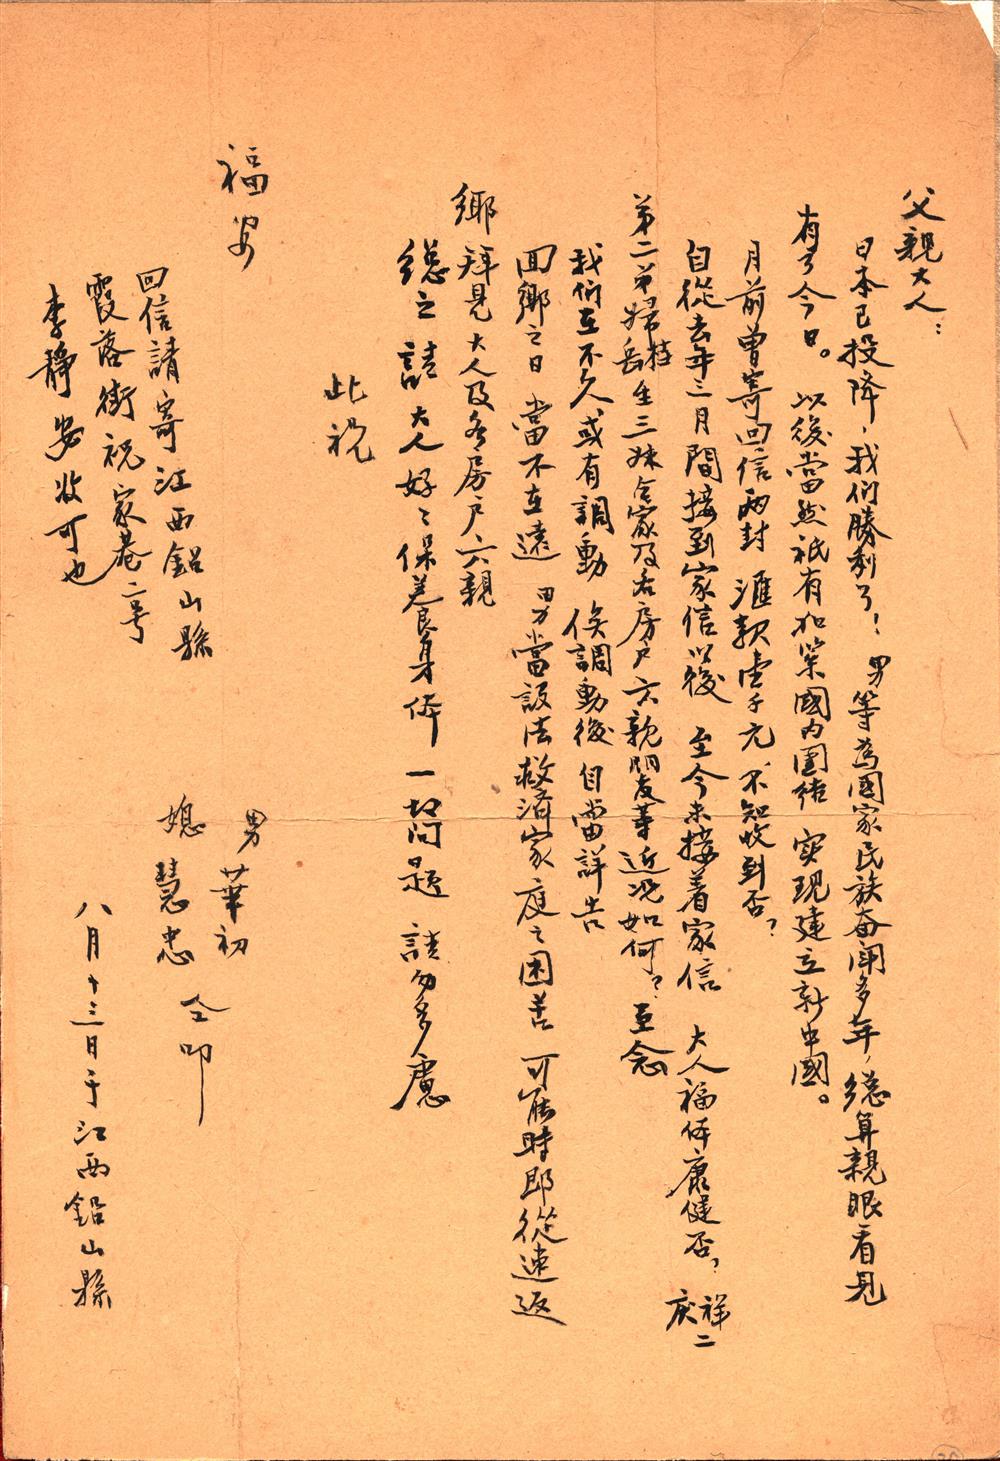 父親大人：
日本已投降，我们勝利了！男等為國家民族奋闹多年，總算親眼看見
有了今日。以後當然祇有加緊國内團結 实現建立新中國。
月前曾寄回信两封 滙款壹千元，不知收到否？
自從去年三月間接到家信以後 至今未接着家信 大人福体康健否？祥二庆
第二弟婦岳桂生三妹全家及各房户六親朋友等近况如何？至念
我们在不久或有調動 俟調動後自當詳告
回鄉之日當不在遠 男當設法救濟家庭之困苦 可能時即從速返
鄉拜見大人及各房户六親
總之請大人好〻保養身体 一切问题 請勿多慮
此祝
福安
男華初
媳慧忠 仝叩
回信請寄江西鉛山縣
霞落街祝家巷二号
李靜安收可也
八月十三日于江西鉛山縣